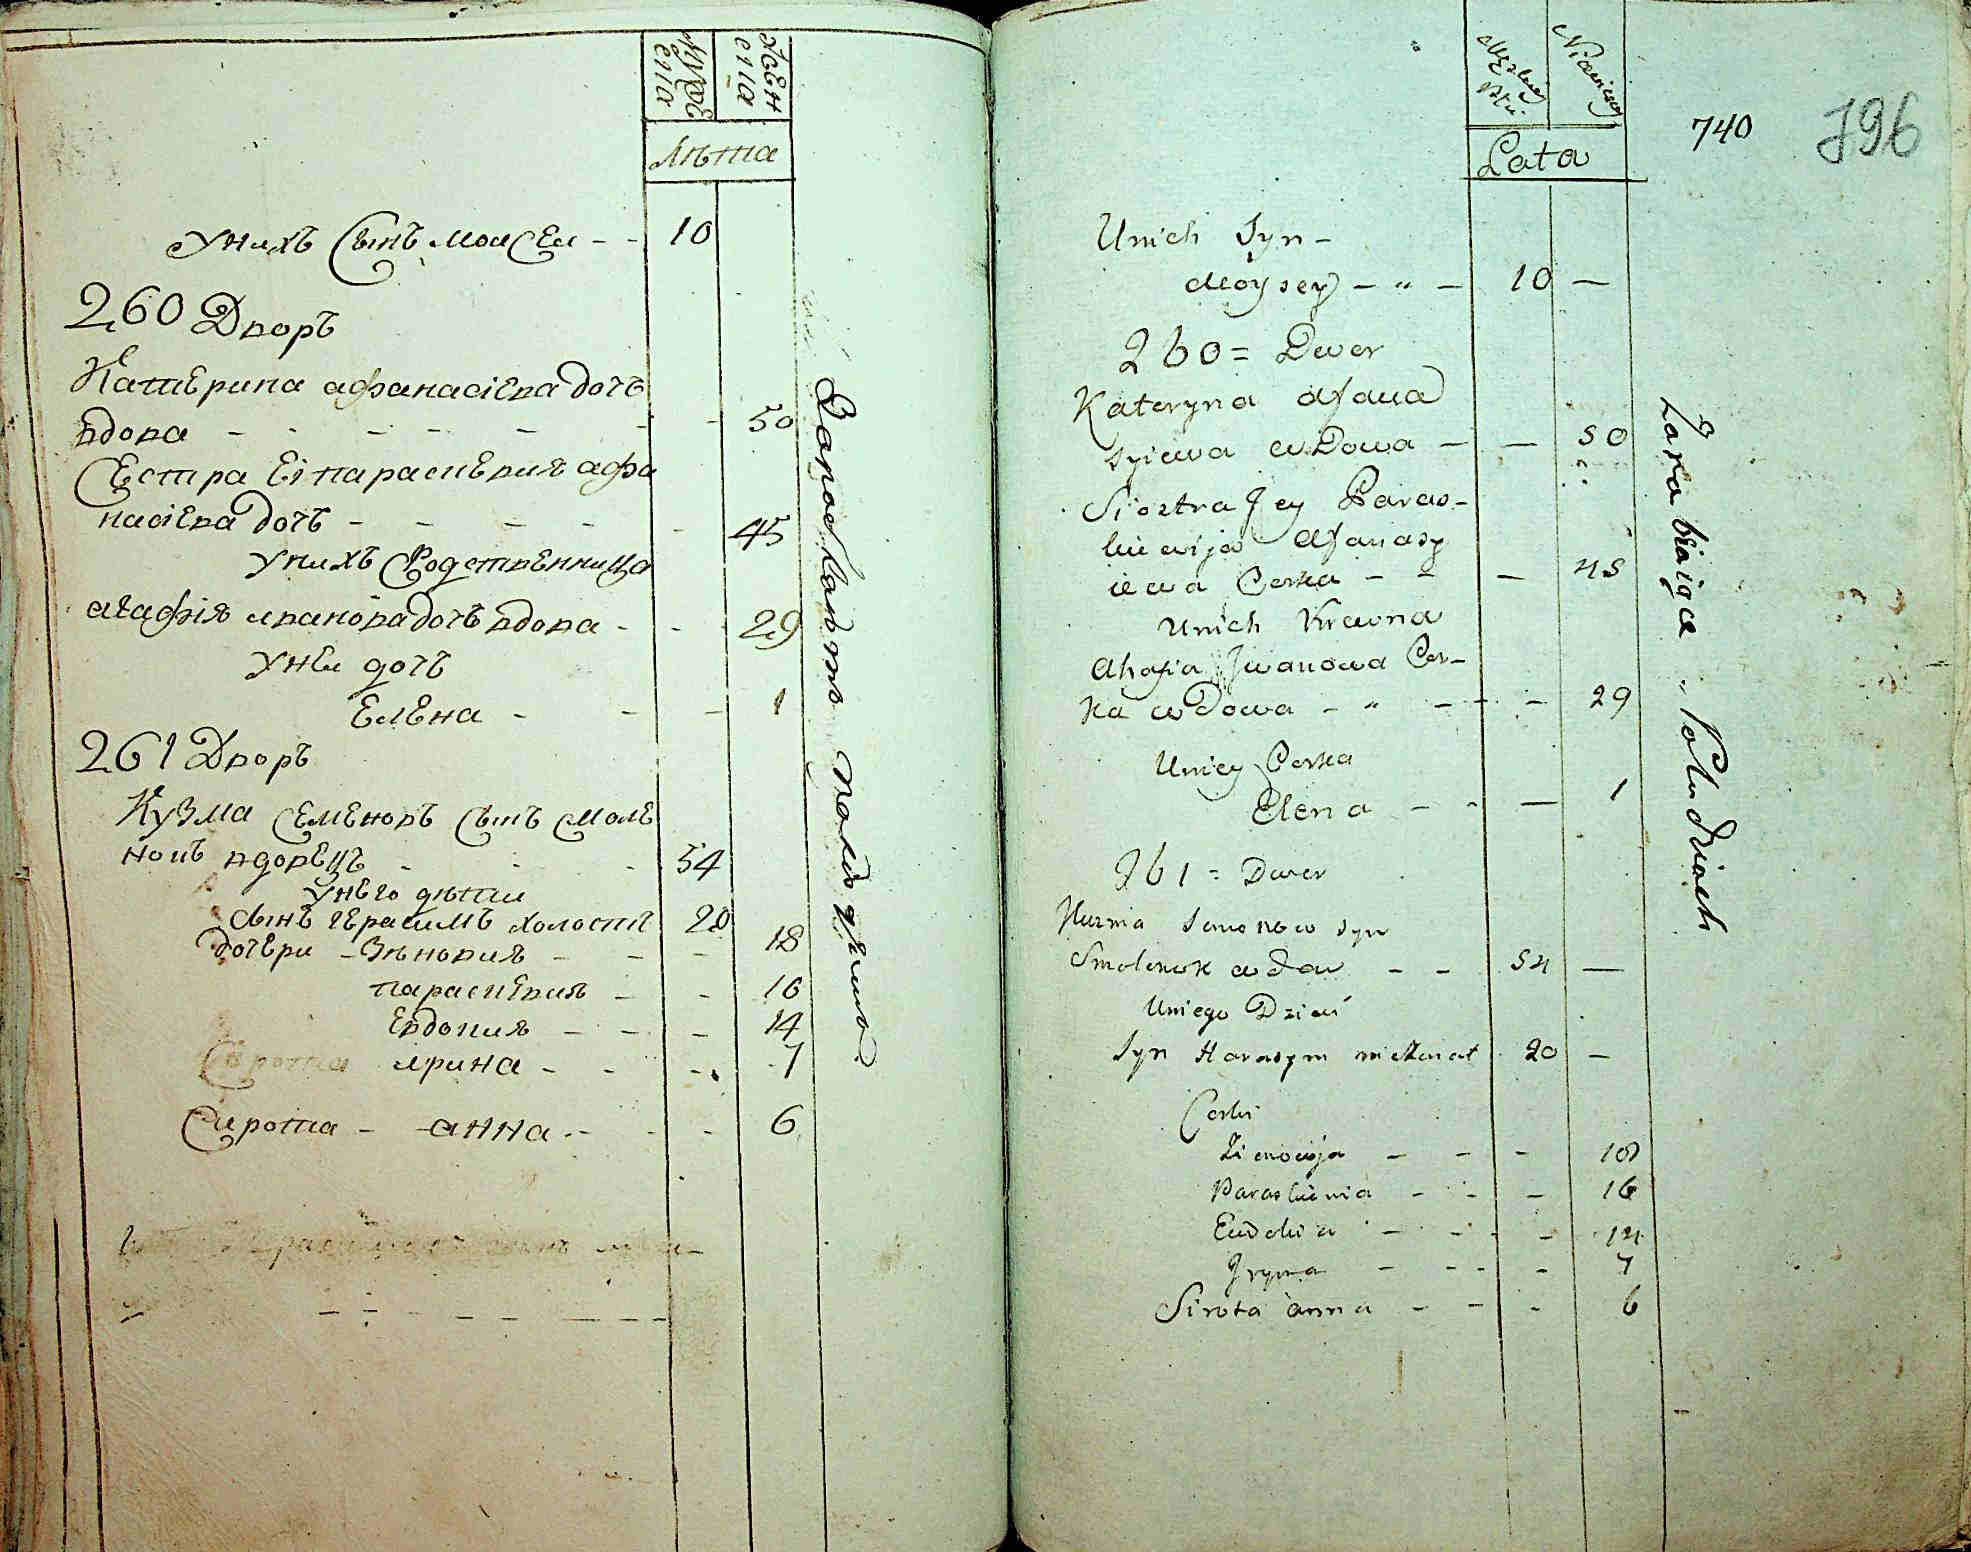 Мужеска
Женска
Лѣта
У нихъ Сынъ Моисеи - - 10
260 Дворъ
Катерина Афанасіева дочь
вдова - - - - - - 50
Сестра Еі параскевия Афа
насіева дочь - - - - - 45
У нихъ Родственница
агафія иванова дочь вдова - - - 29
У неи дочь
Елена - - - 1
261 Дворъ
Кузма Семеновъ Сынъ Смоле
нокъ вдовецъ - - - 54
У него дѣти
сынъ герасимъ холостъ 20
дочери - Зѣновия - - - 18
параскевия - - 16
Евдокия - - - 14
ирина - - - 7
Сирота - анна - - - - 6
Заработкомъ половдиши
740
796
Męzkiey
Płci
Niewiesciey
Lata
Unich Syn -
Moysey - " - 10 -
260 = Dwor
Kateryna Afana
syiewa wdowa - - 50
Siostra Jey Paras-
kiewija Afanasy
iewa Corka - - - 45
Unich Krewna
Ahafia Jwanowa Cor-
ka wdowa - " - - - 29
Uniey Corka
Elena - - - 1
261 = Dwor
Kuzma Semenow syn
Smolenok wdow - - 54 -
Uniego Dzieci
Syn Harasym nieżonat 20 -
Corki
Zienowija - - - 18
Paraskiewia - - - 16
Eudokia - - - - 14
Jryna - - - - 7
Sirota anna - - - 6
Zarabiaiące po Ludziach